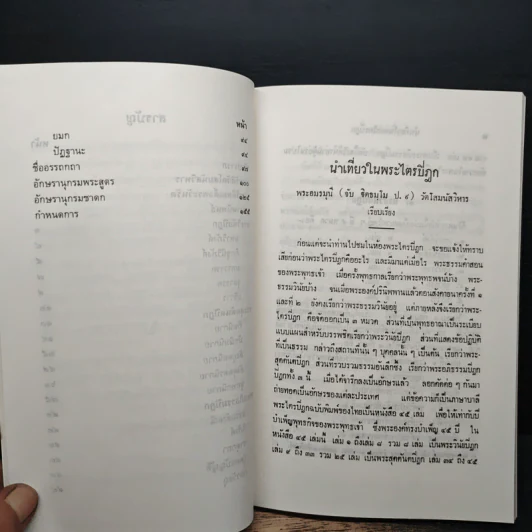 หน้า
ยมก ๙๔
ปัฏฐานะ ๙๔
ชื่ออรรถกถา ๑๐๐
อักษรานุกรมพระสูตร ๑๐๑
อักษรานุกรมชาดก ๑๒๕
กำหนดการ ๑๕๕
นำเที่ยวในพระไตรปิฎก
พระอมรมุนี (จับ ฐิตธมฺโม ป. ๙) วัดโสมนัสวิหาร
เรียบเรียง
ก่อนแต่จะนำท่านไปชมในห้องพระไตรปิฎก จะขอแจ้งให้ทราบ
เสียก่อนว่าพระไตรปิฎกคืออะไร และมีมาแต่เมื่อไร พระธรรมคำสอน
ของพระพุทธเจ้า เมื่อครั้งพุทธกาลเรียกว่าพระพุทธพจน์บ้าง พระ-
ธรรมวินัยบ้าง จนเมื่อพระองค์ปรินิพพานแล้วตอนสังคายนาครั้งที่ ๑
และที่ ๒ ยังคงเรียกว่าพระธรรมวินัยอยู่ แต่ภายหลังจึงเรียกว่าพระ-
ไตรปิฎก คือจัดออกเป็น ๓ หมวด ส่วนที่เป็นพุทธอาณาเป็นระเบียบ
แบบแผนสำหรับบรรพชิตเรียกว่าพระวินัยปิฎก ส่วนที่แสดงข้อปฏิบัติ
ที่เป็นธรรม กล่าวถึงสถานที่นั้น ๆ บุคคลนั้น ๆ เป็นต้น เรียกว่าพระ-
สุตตันตปิฎก ส่วนที่รวบรวมธรรมอันลึกซึ้ง เรียกว่าพระอภิธรรมปิฎก
ปิฎกทั้ง ๓ นี้ เมื่อได้จารึกลงเป็นอักษรแล้ว ลอกคัดต่อ ๆ กันมา
ถ่ายทอดเป็นอักษรของแต่ละประเทศ แต่ข้อความก็เป็นภาษาบาลี
พระไตรปิฎกฉบับพิมพ์ของไทยเป็นหนังสือ ๔๕ เล่ม เพื่อให้เท่ากับปี
บำเพ็ญพุทธกิจของพระพุทธเจ้า ซึ่งพระองค์ทรงบำเพ็ญ ๔๕ ปี ใน
หนังสือ ๔๕ เล่มนี้ เล่ม ๑ ถึงเล่ม ๘ รวม ๘ เล่ม เป็นพระวินัยปิฎก
เล่ม ๙ ถึง ๓๓ รวม ๒๕ เล่ม เป็นพระสุตตันตปิฎก เล่ม ๓๔ ถึง ๔๕